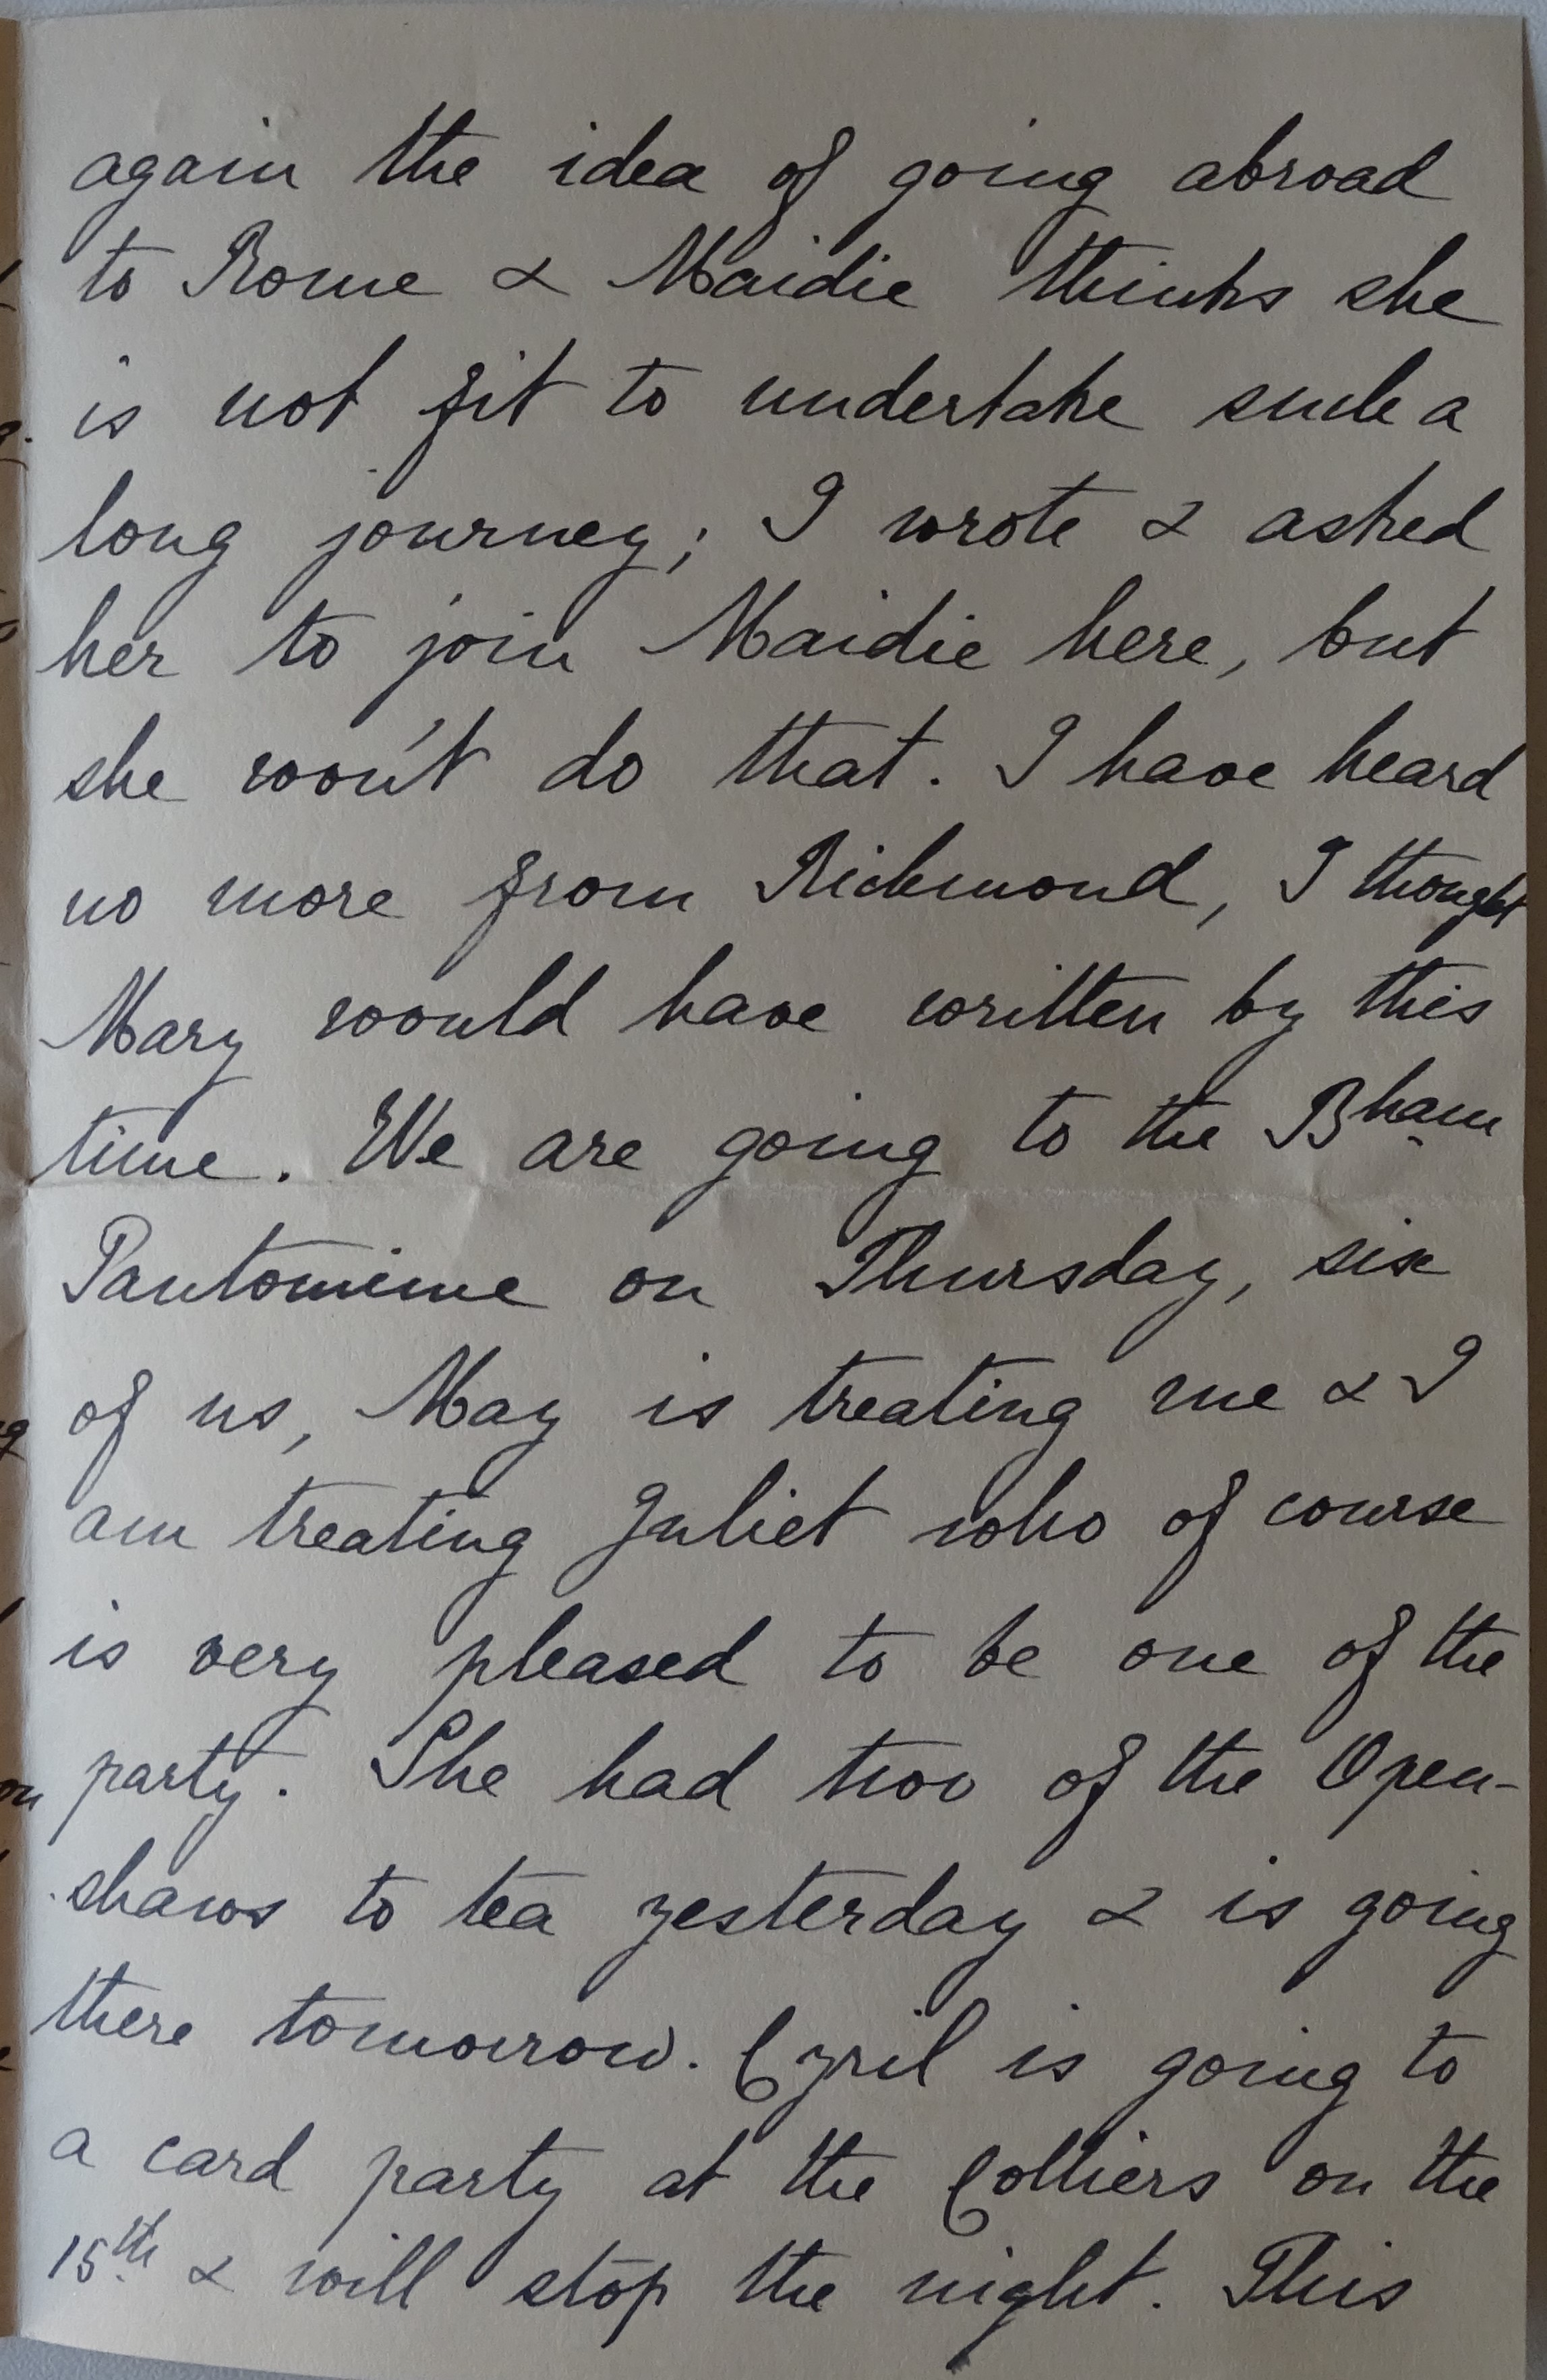 again the idea of going abroad
to Rome & Maidie thinks she
is not fit to undertake such a
long journey; I wrote & asked
her to join Maidie here, but
she won't do that. I have heard
no more from Richmond, I thought
Mary would have written by this
time. We are going to the Bham
Pantomime on Thursday, six
of us, May is treating me & I
am treating Juliet who of course
is very pleased to be one of the
party. She had two of the Open-
shaws to tea yesterday & is going
there tomorrow. Cyril is going to
a card party at the Colliers on the
15th & will stop the night. This